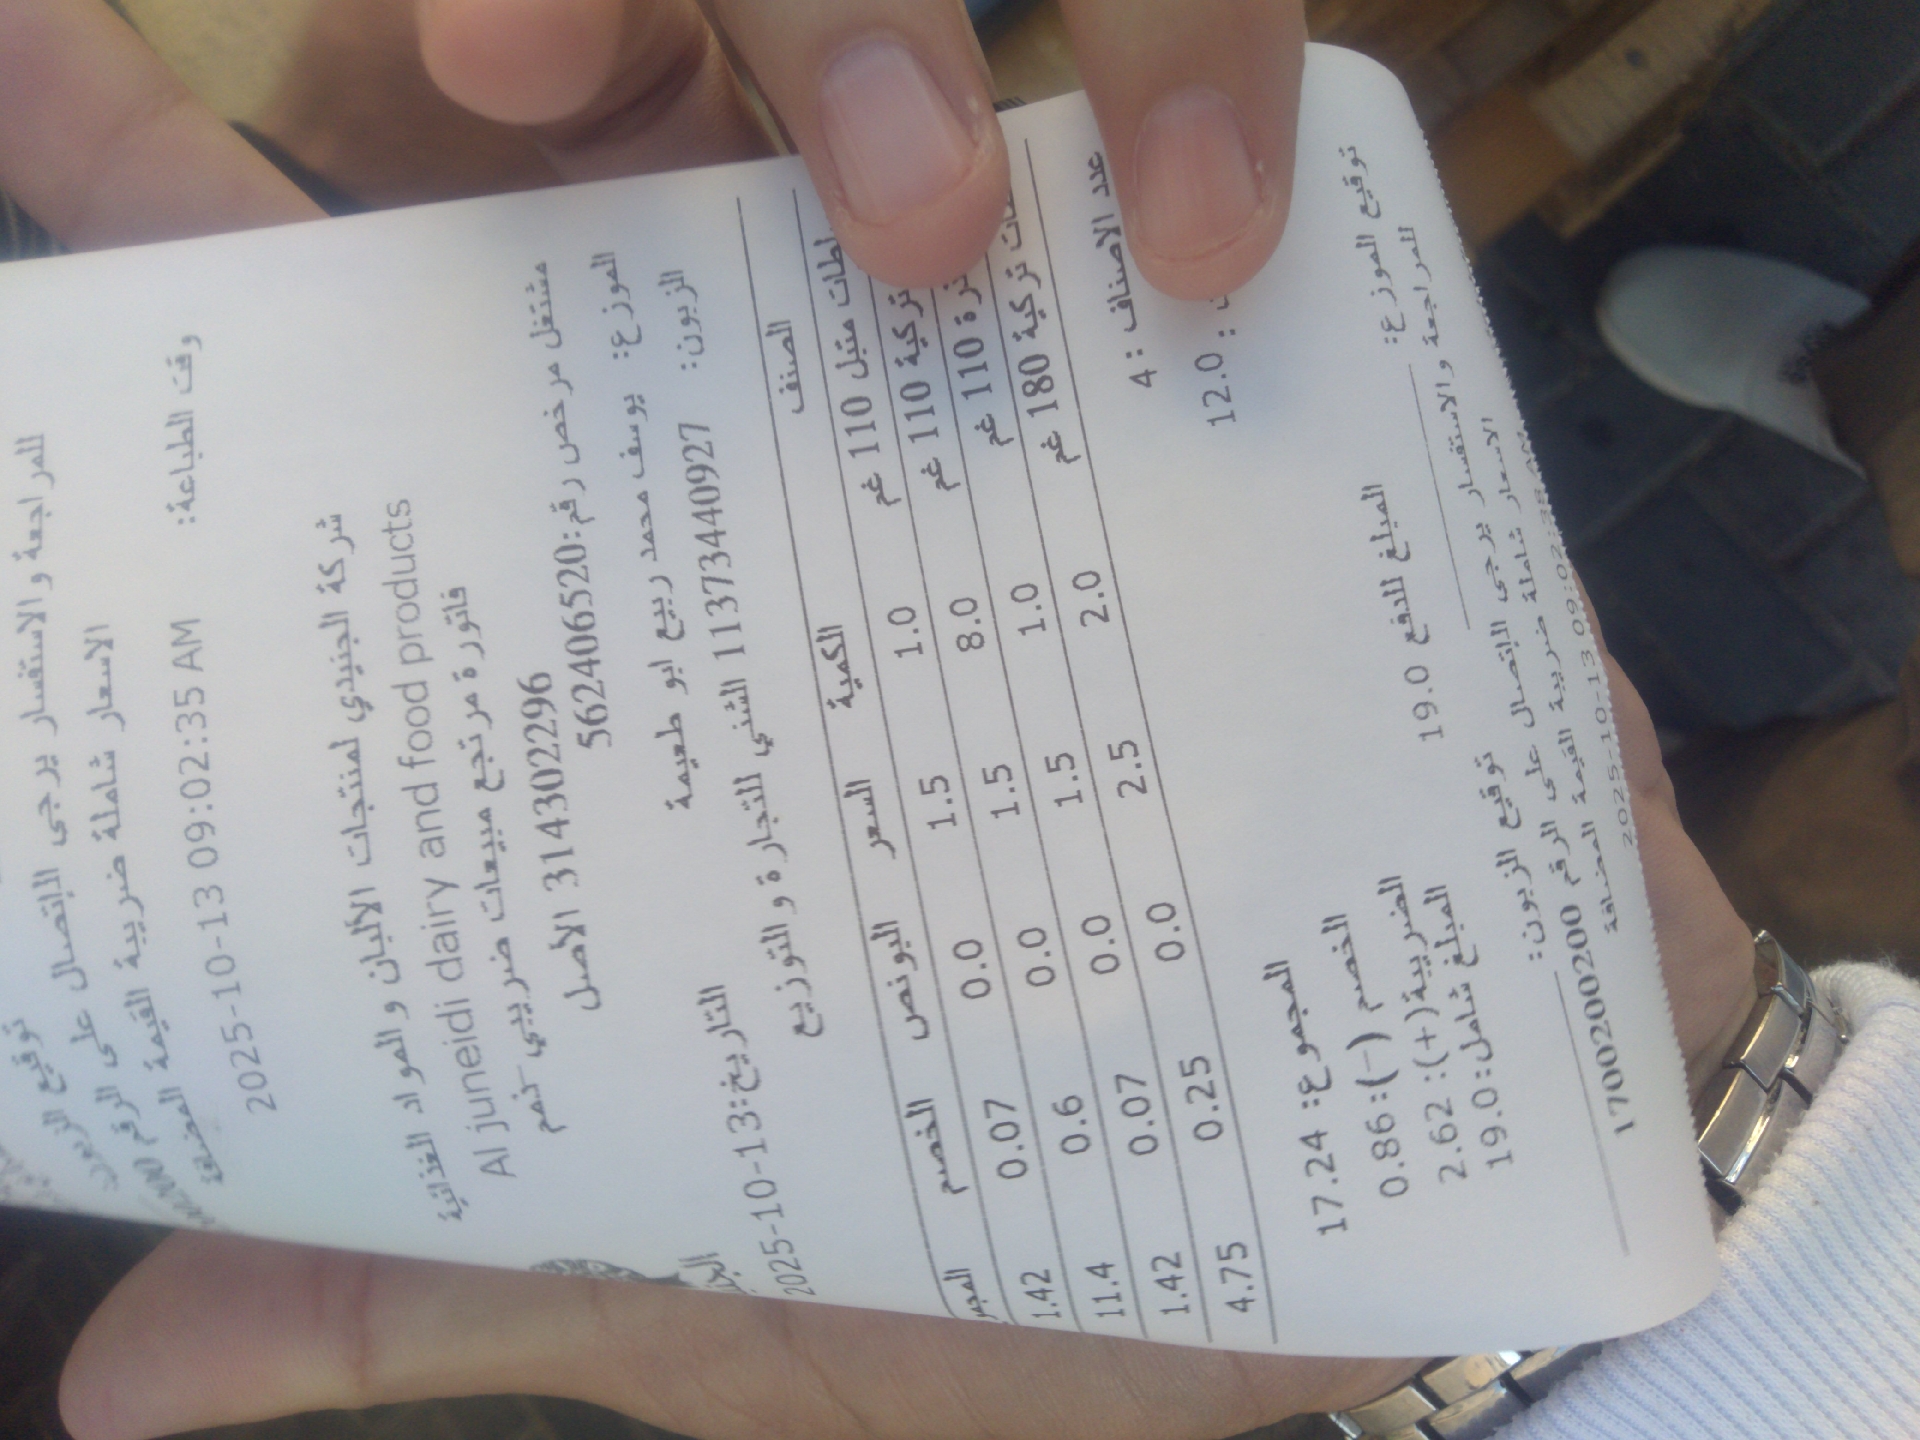 توقيع الزبون:
المراجعة والاستفسار يرجى الاتصال على الرقم
الاسعار شاملة ضريبة القيمة المضافة
وقت الطباعة: 2025-10-13 09:02:35 AM
شركة الجنيدي لمنتجات الألبان والمواد الغذائية
Al juneidi dairy and food products
فاتورة مرتجع مبيعات ضريبي-كم
314302296 الأصل
مشتغل مرخص رقم:562406520
الموزع: يوسف محمد ربيع ابو طعيمة
الزبون: 11373440927 الشني للتجارة والتوزيع
التاريخ:2025-10-13
2025-10-13
الصنف الكمية السعر البونص الخصم
متبل 110 غم 1.0 1.5 0.0 0.07 1.42
تركية 110 غم 8.0 1.5 0.0 0.6 11.4
110 غم 1.0 1.5 0.0 0.07 1.42
تركية 180 غم 2.0 2.5 0.0 0.25 4.75
عدد الاصناف : 4
12.0 :
المجموع: 17.24
الخصم (-):0.86
الضريبة(+): 2.62
المبلغ شامل:19.0
المبلغ للدفع 19.0
توقيع الموزع:
توقيع الزبون:
للمراجعة والاستفسار يرجى الاتصال على الرقم 1700200200
الاسعار شاملة ضريبة القيمة المضافة